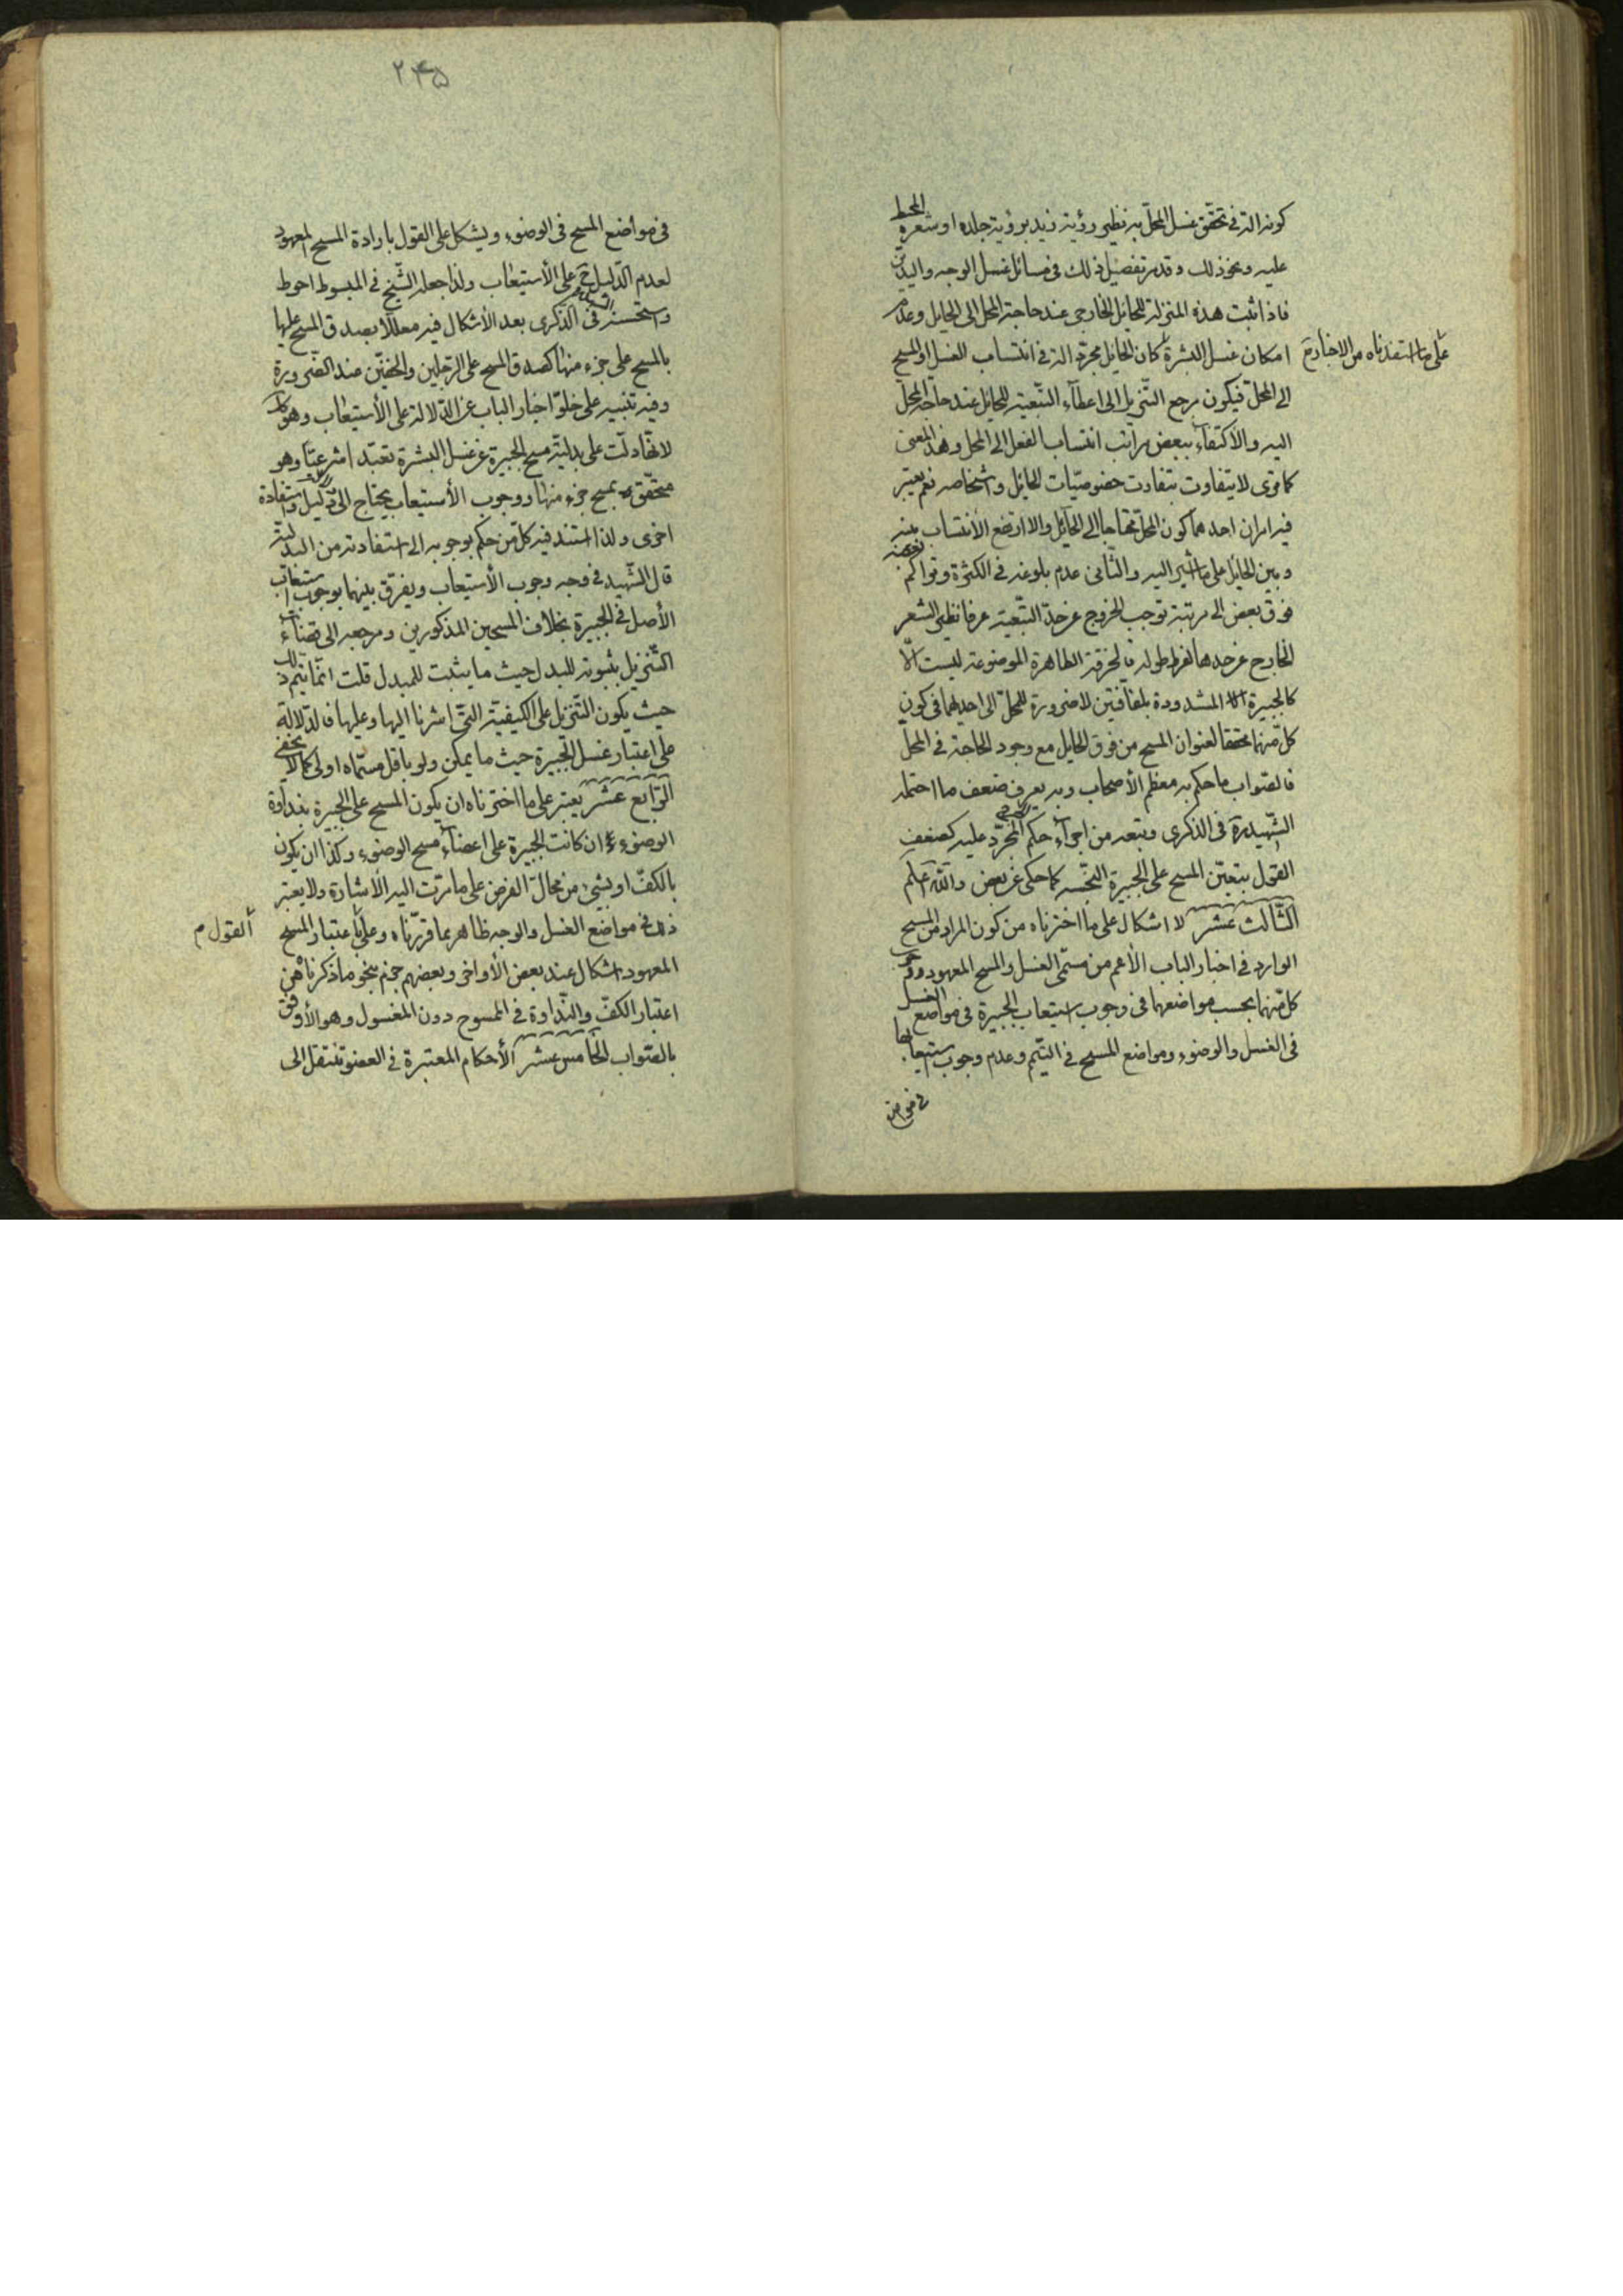 كونه آلة في تحقّق غسل المحلّ به نظير رؤية زيد برؤية جلده او شعره المحيط
عليه ونحو ذلك وقد مرّ تفصيل ذلك في مسائل غسل الوجه واليدين
فاذا ثبت هذه المنزلة للحائل الخارجي عند حاجة المحل الى الحايل وعدم
امكان غسل البشرة كان الحايل مجرّد آلة في انتساب الغسل او المسح
على ما استفدناه من الاخبار م
الى المحلّ فيكون مرجع التّنزيل الى اعطآء التّبعيّة للحايل عند حاجة المحلّ
اليه والأكتفآء ببعض مراتب انتساب الفعل الى المحل وهذا المعنى
كما ترى لا يتفاوت بتفاوت خصوصيّات الحايل واشخاصه نعم يعتبر
فيه امران احدهما كون المحلّ محتاجا الى الحآئل والا ارتفع الأنتساب بينه
وبين الحائل على ما اشير اليه والثّاني عدم بلوغه في الكثرة وتراكم بعضه
فوق بعض الى مرتبة توجب الخروج عن حدّ التّبعيّة عرفا نظير الشعر
الخارج عن حدها لفرط طوله فالخرقة الطاهرة الموضوعة ليست الّا
كالجبيرة المشدودة بلفافتين لا ضرورة للمحلّ الى احديهما في كون
كلّ منهما محققا لعنوان المسح من فوق الحايل مع وجود الحاجة في المحلّ
فالصّواب ما حكم به معظم الأصحاب وبه يعرف ضعف ما احتمله
الشّهيد ره في الذكرى وتبعه من اجرآء حكم الجرح المجرّد عليه كضعف
القول بتعيّن المسح على الجبيرة النّجسه كما حكى عن بعض والله اعلم
الثّالث عشر لا اشكال على ما اخترناه من كون المراد من المسح
الوارد في اخبار الباب الأعم من مسمّى الغسل والمسح المعهود ووجوب
كلّ منهما بحسب مواضعهما في وجوب استيعاب الجبيرة في مواضع الغسل
في الغسل والوضوء ومواضع المسح في التيّمم وعدم وجوب استيعابها
في مواضع
۲۴۵
في مواضع المسح في الوضوء ويشكل على القول بارادة المسح المعهود
لعدم الدّليل ح على الأستيعاب ولذا جعله الشّيخ في المبسوط احوط
واستحسنه الشهيد في الذكرى بعد الأشكال فيه معللا بصدق المسح عليها
بالمسح على جزء منها كصدق المسح على الرّجلين والخفيّن عند الضّرورة
وفيه تنبيه على خلوّ اخبار الباب عن الدّلالة على الأستيعاب وهو كك
لانّها دلّت على بدليّة مسح الجبيرة عن غسل البشرة تعبّدا شرعيّا وهو
متحقّق بمسح جزء منها ووجوب الأستيعاب يحتاج الى دليل واستفادة
اخرى ولذا استند فيه كلّ من حكم بوجوبه الى استفادته من البدليّة
قال الشّهيد في وجه وجوب الأستيعاب ويفرّق بينهما بوجوب استيعاب
الأصل في الجبيرة بخلاف المسحين المذكورين ومرجعه الى اقتضآء
التّنزيل بثبوته للبدل حيث ما يثبت للمبدل قلت انّما يتم ذلك
حيث يكون التّنزيل على الكيفيّة الّتي اشرنا اليها وعليها فالدّلالة
على اعتبار غسل الجبيرة حيث ما يمكن ولو باقل مسمّاه اولى كما لا يخفى
الرّابع عشر يعتبر على ما اخترناه ان يكون المسح على الجبيرة بنداوة
الوضوء ان كانت الجبيرة على اعضآء مسح الوضوء وكذا ان يكون
بالكفّ او بشئ من محالّ الفرض على ما مرّت اليه الأشارة ولا يعتبر
ذلك في مواضع الغسل والوجه ظاهر بما قرّرناه وعلى باعتبار المسح
القول م
المعهود اشكال عند بعض الأواخر وبعضهم جزم بنحو ما ذكرناه من
اعتبار الكفّ والنّداوة في الممسوح دون المغسول وهو الأوفق
بالصّواب الخامس عشر الأحكام المعتبرة في العضو تنتقل الى